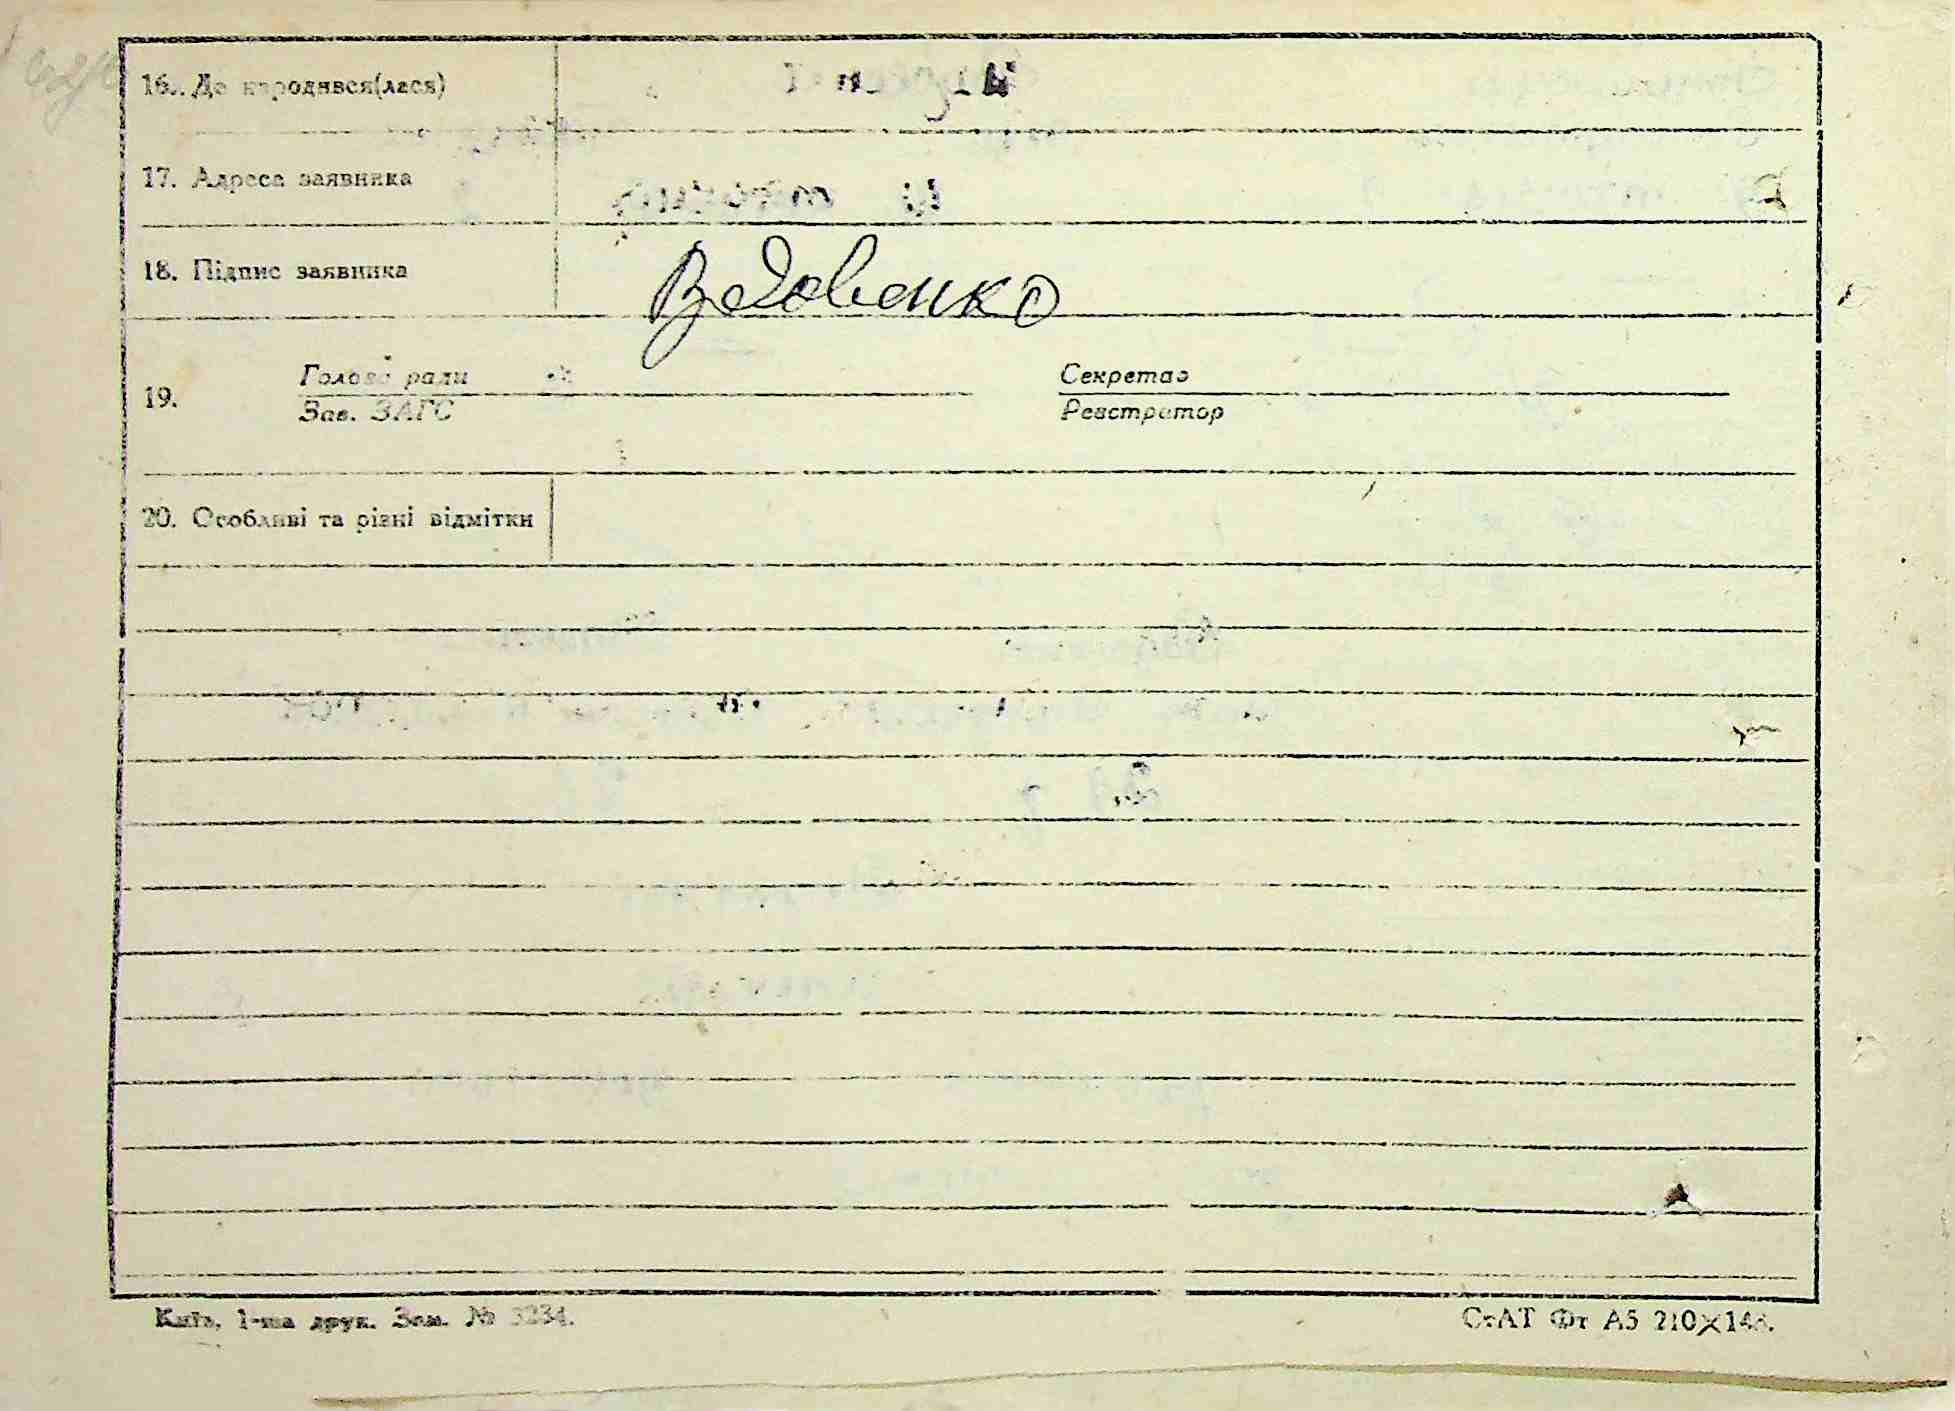 16. Де народився(лася)
17. Адреса заявника
18. Підпис заявника Вдовенко
19. Голова ради Секретар
Зав. ЗАГС Реєстратор
20. Особливі та різні відмітки
Київ, 1-ша друк. Зам. № 3234. СтАТ Фт А5 210×148.